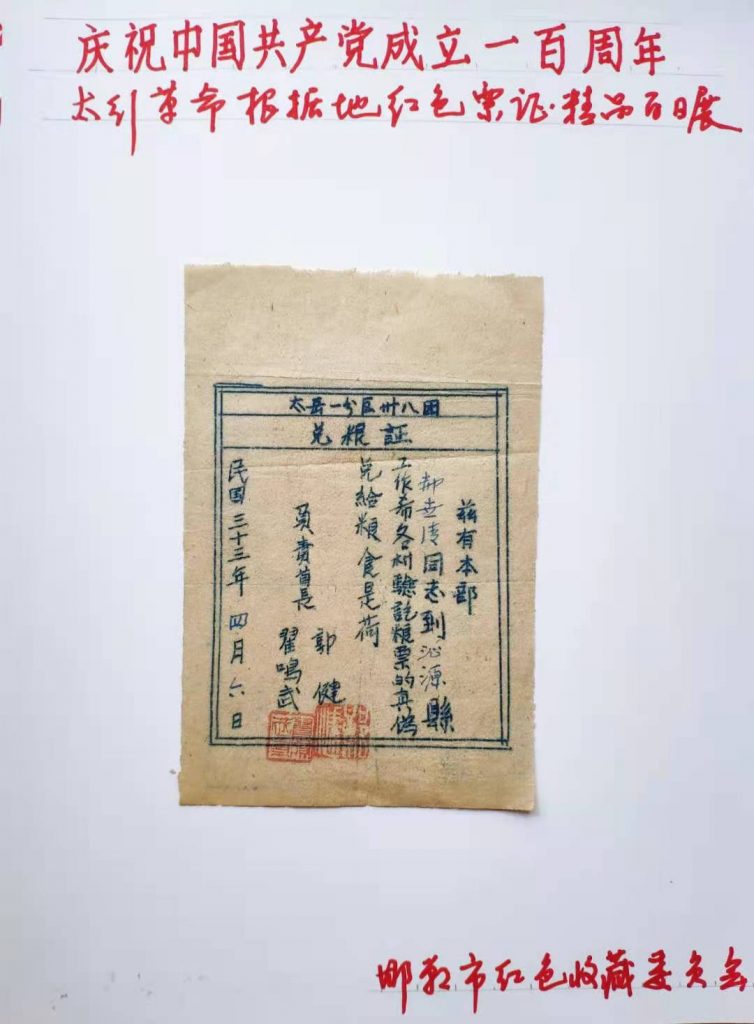 庆祝中国共产党成立一百周年
太行革命根据地红色票证·精品百日展
太岳一分区卅八团
兑粮証
茲有本部
世清同志到沁源縣
工作希各村驗訖粮票的真偽
兑給粮食是荷
負責首長 郭健
翟鳴武
民國三十三年四月六日
邯郸市红色收藏委员会